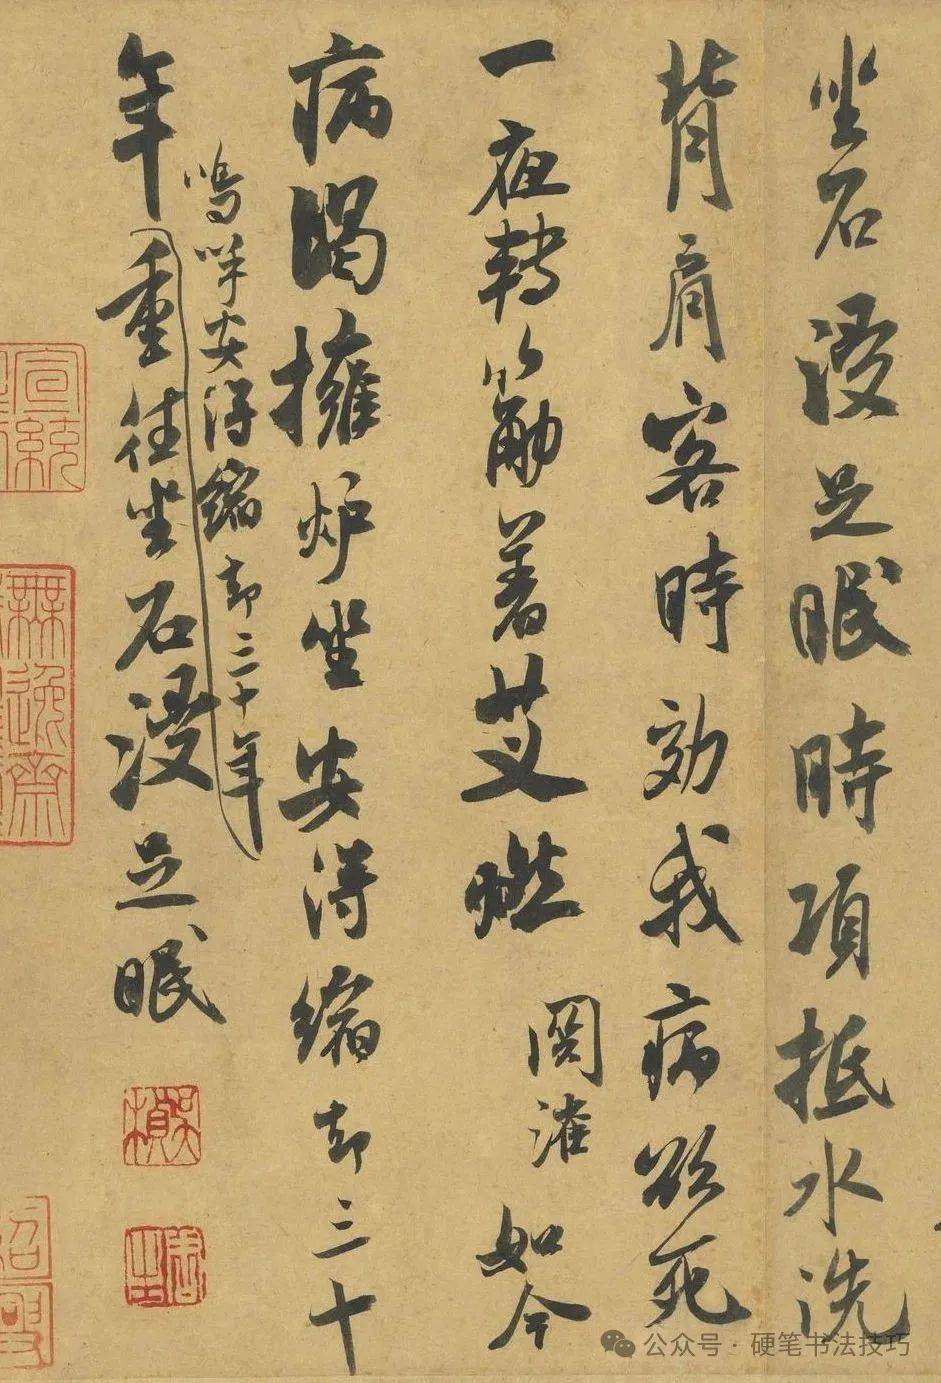 坐石浸足眠時項抵水洗
背肩客時効我病欲死
一夜轉筋著艾燃
如今
病暍擁炉坐安得縮却三十
嗚呼安得縮却三十年
年重往坐石浸足眠
宣統
無逸齋
公众号·硬笔书法技巧